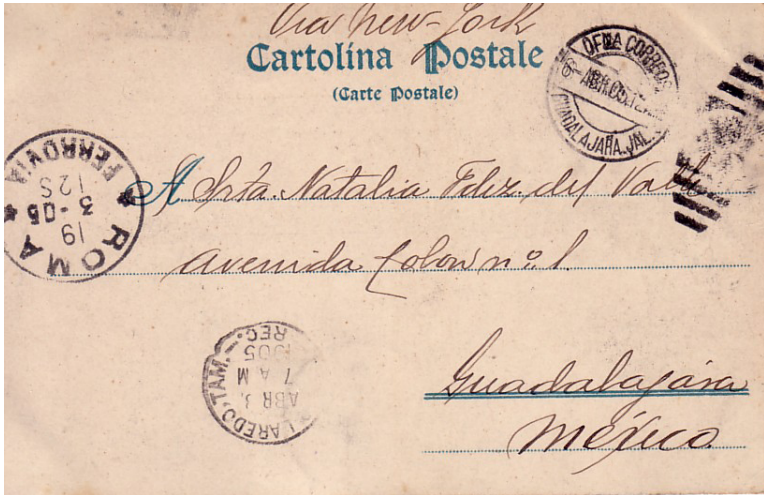 Via New-York
Cartolina Postale
(Carte Postale)
OFNA CORREOS
ABR.05.12
GUADALAJARA. JAL.
ROMA
FERROVIA
19
3-05
12S
A Srta. Natalia Fdez. del Valle
Avenida Colon no. 1.
LAREDO, TAM.
ABR 3.
7 A M
1905
REC.
Guadalajara
México